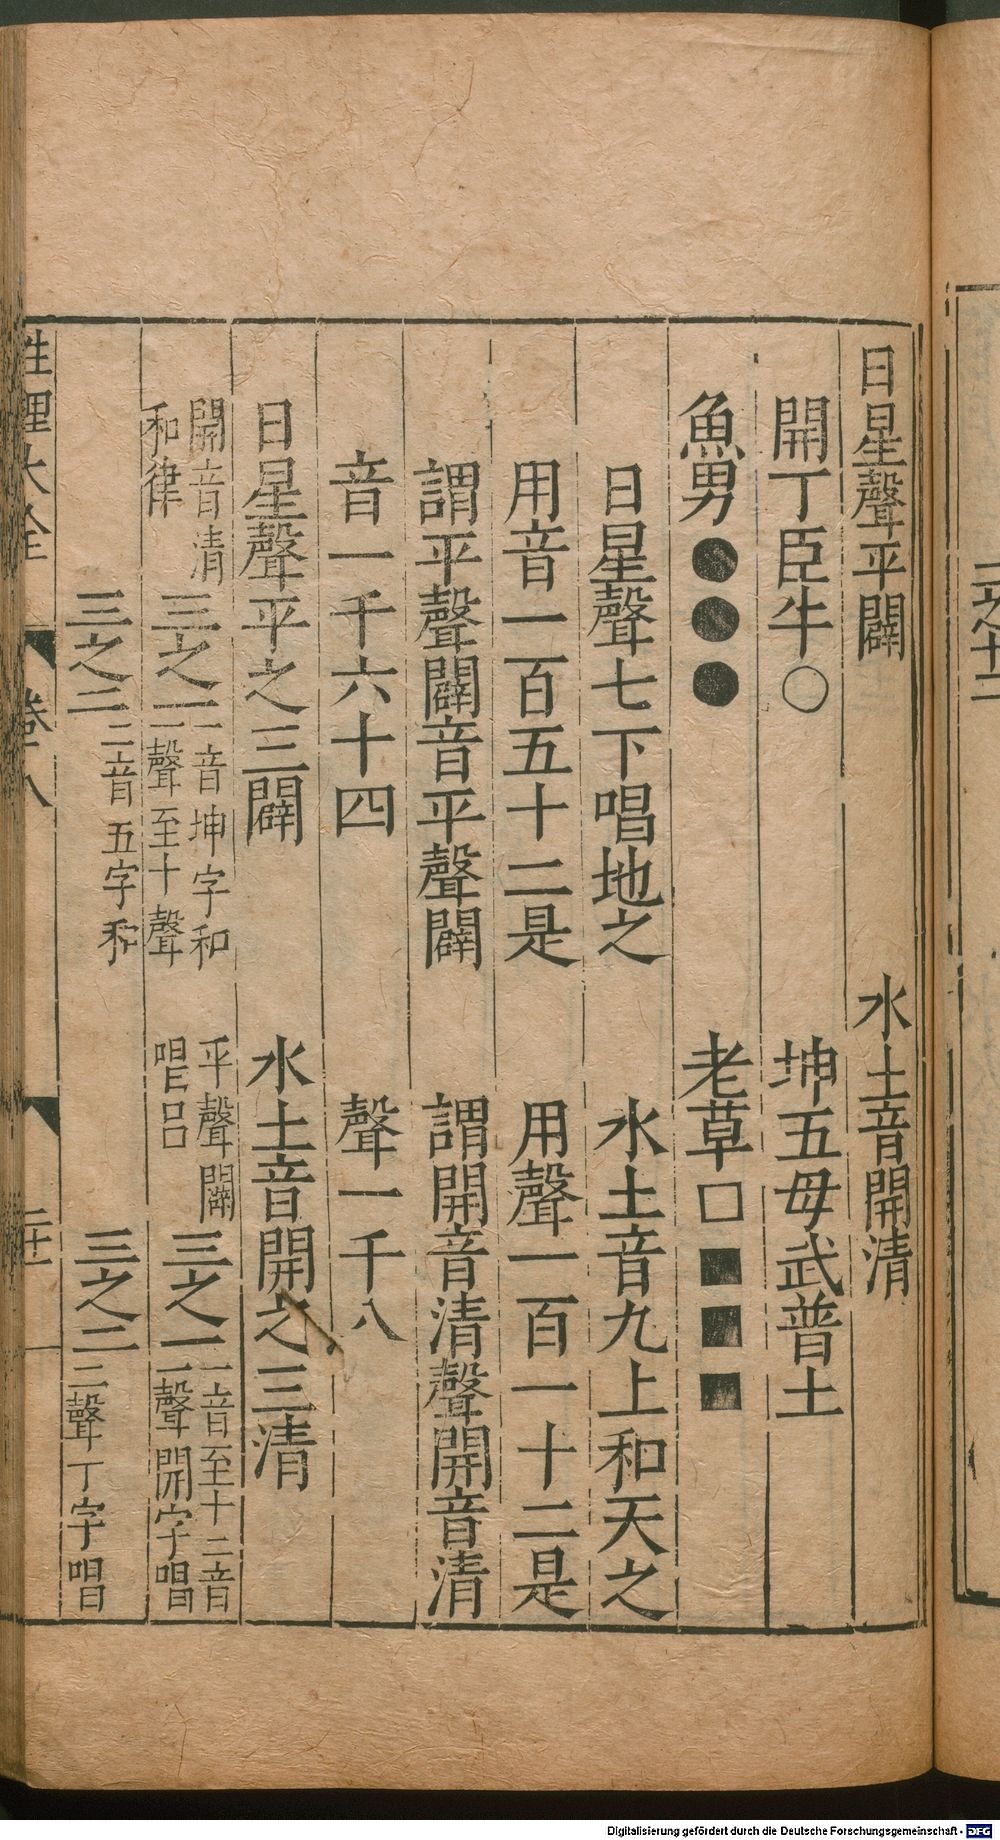 日星聲平闢　水土音開清
開丁臣牛○　坤五母武普土
魚男●●●　老草□■■■
日星聲七下唱地之　水土音九上和天之
用音一百五十二是　用聲一百一十二是
謂平聲闢音平聲闢　謂開音清聲開音清
音一千六十四　聲一千八
日星聲平之三闢　水土音開之三清
開音清和律　三之一　一音坤字和一聲至十聲　平聲闢唱呂　三之一　一音至十二音一聲開字唱
三之二　二音五字和　三之二　二聲丁字唱
性理大全　卷八
Digitalisierung gefördert durch die Deutsche Forschungsgemeinschaft - DFG